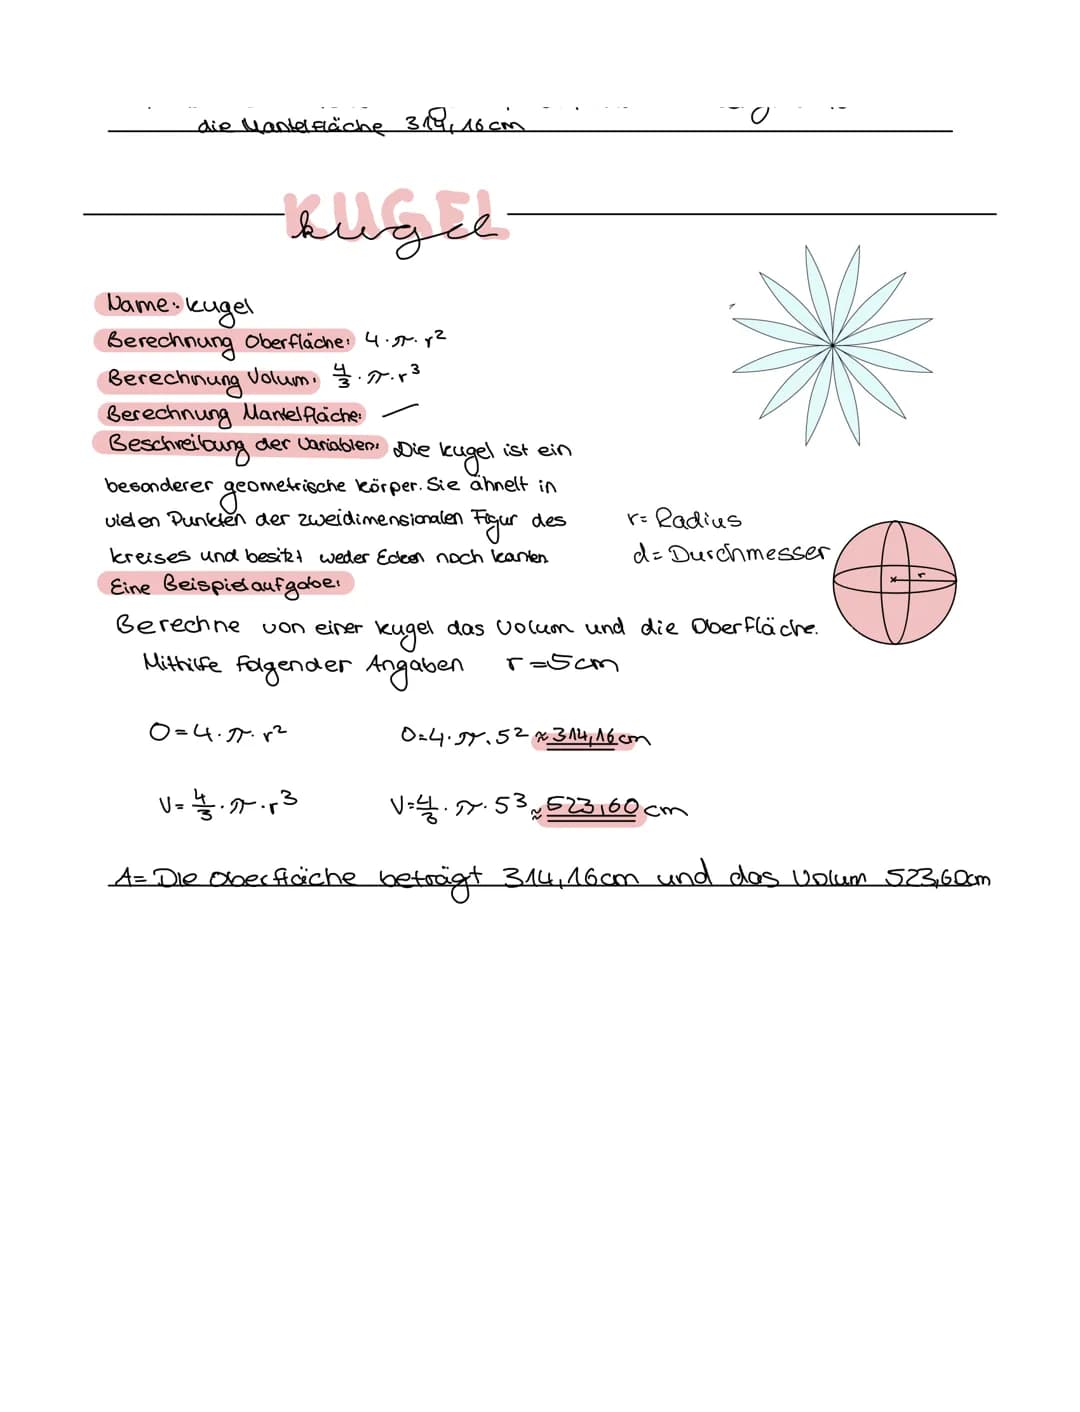 die Mantelfläche 314,16cm
KUGEL
kugel
Name: kugel
Berechnung Oberfläche: 4·π·r²
Berechnung Volum: 4/3·π·r³
Berechnung Mantelfläche: —
Beschreibung der Variablen: Die kugel ist ein
besonderer geometrische körper. Sie ähnelt in
vielen Punkten der zweidimensionalen Figur des
kreises und besitzt weder Ecken noch kanten
r= Radius
d= Durchmesser
r
Eine Beispielaufgabe:
Berechne von einer kugel das Volum und die Oberfläche.
Mithilfe folgender Angaben r=5cm
O=4·π·r² O=4·π·5² ≈314,16cm
V=4/3·π·r³ V=4/3·π·5³ ≈523,60cm
A= Die Oberfläche beträgt 314,16cm und das Volum 523,60cm